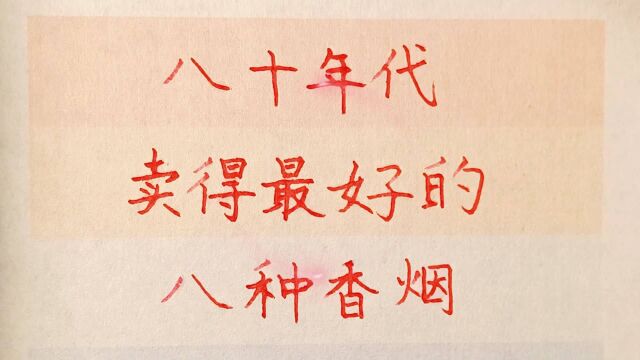 八十年代
卖得最好的
八种香烟